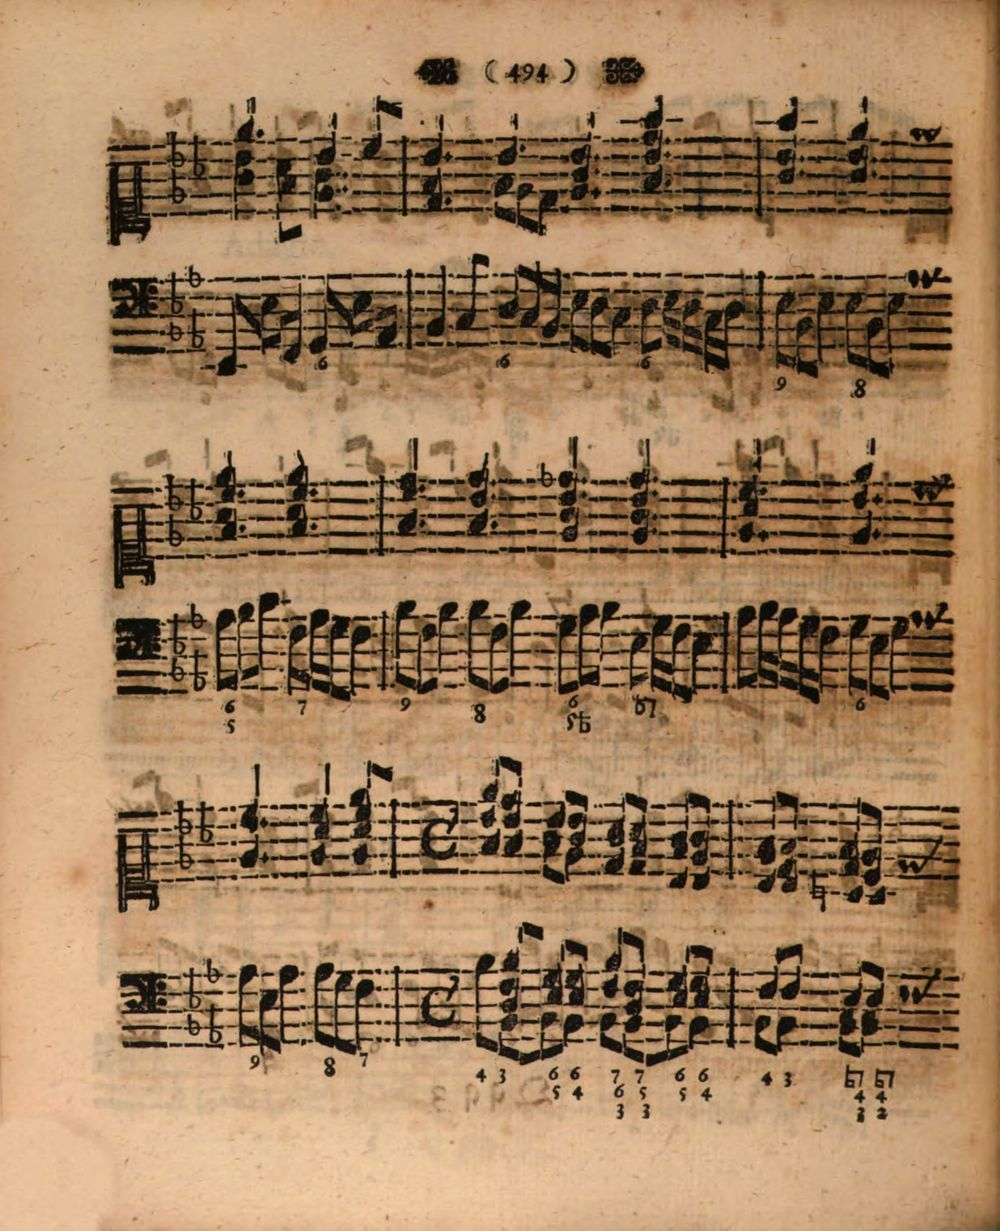 ( 494 )
6 6 6 9 8
6 7 9 8 6 ♭7 6
5 5♭
9 8 7
4 3 6 6 7 7 6 6 4 3 ♭7 ♭7
5 4 6 5 5 4 4 4
3 3 2 2